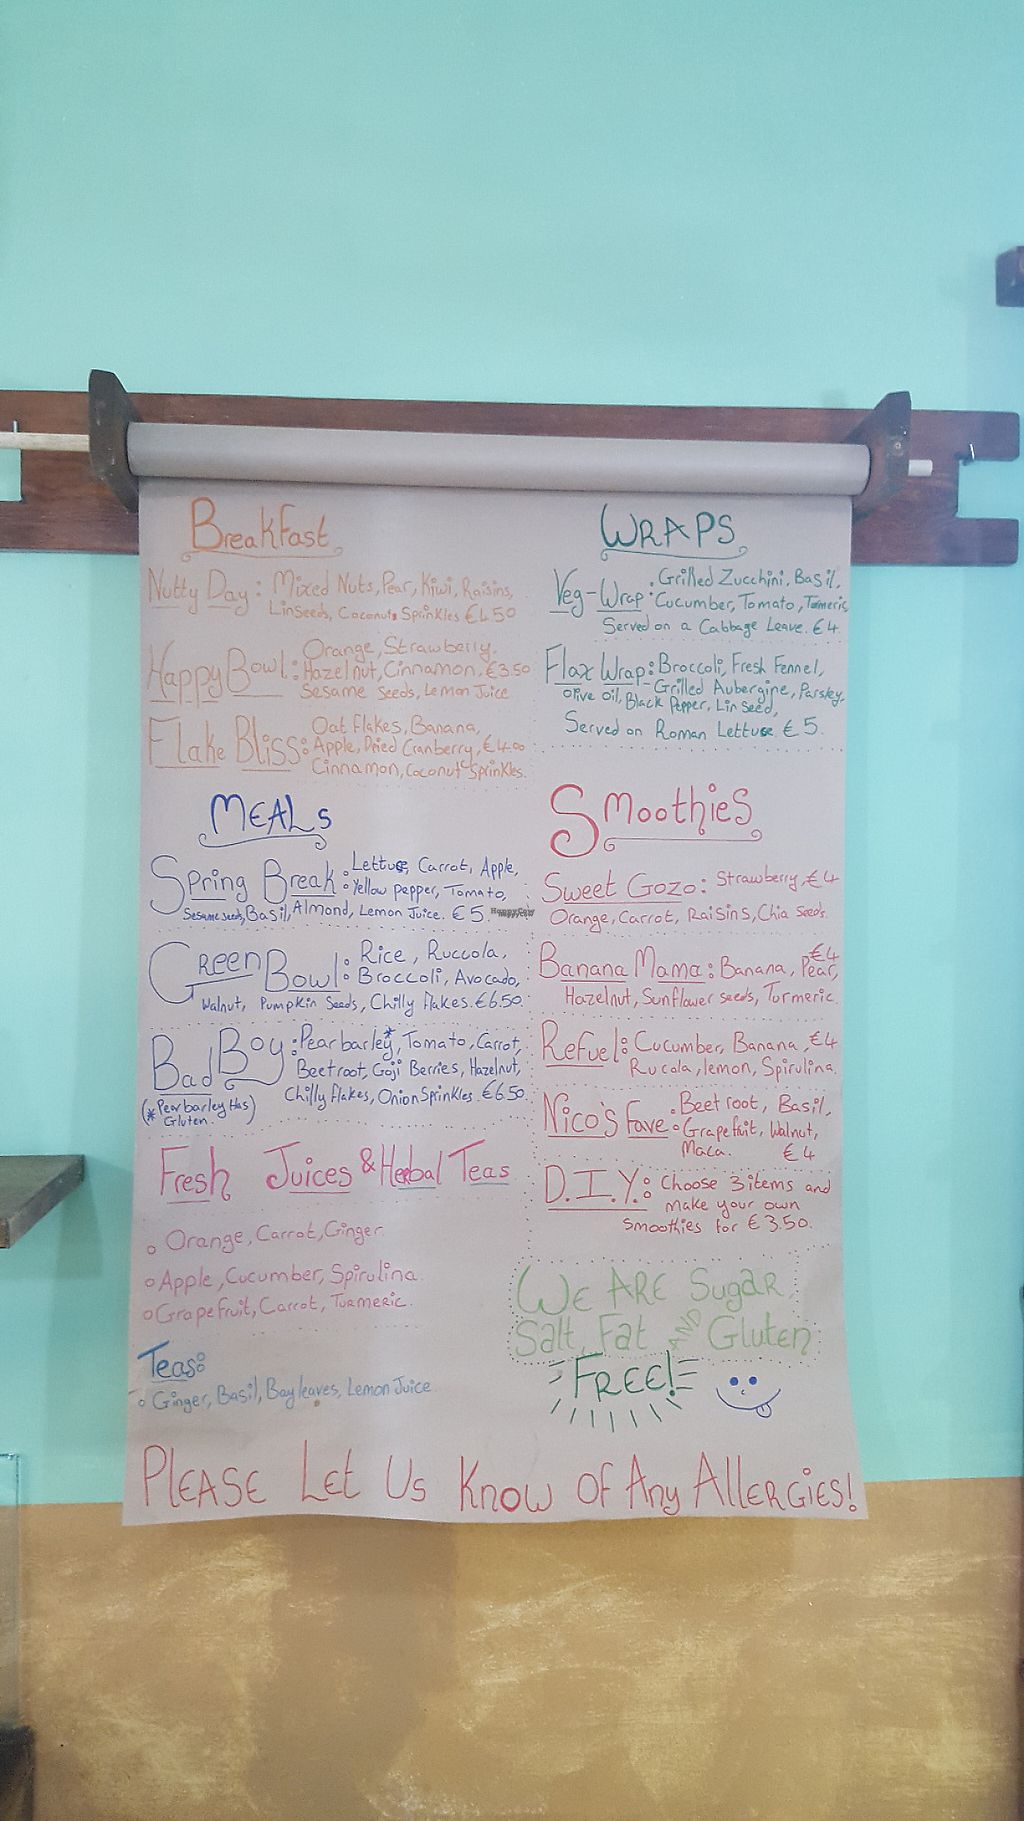 BreakFast
Nutty Day: Mixed Nuts, Pear, Kiwi, Raisins,
LinSeeds, Coconuts Sprinkles €4.50
Happy Bowl: Orange, Strawberry,
Hazelnut, Cinnamon, €3.50
Sesame Seeds, Lemon Juice
Flake Bliss: Oat Flakes, Banana,
Apple, Dried Cranberry, €4.00
Cinnamon, Coconut Sprinkles.
MEALs
Spring Break: Lettuce, Carrot, Apple,
Yellow pepper, Tomato,
Sesame seeds, Basil, Almond, Lemon Juice. €5.
HappyCow
Green Bowl: Rice, Ruccola,
Broccoli, Avocado,
Walnut, Pumpkin Seeds, Chilly flakes. €6.50.
Bad Boy: Pearbarley*, Tomato, Carrot,
Beetroot, Goji Berries, Hazelnut,
Chilly flakes, Onion Sprinkles. €6.50.
(* Pearbarley Has
Gluten.)
Fresh Juices & Herbal Teas
o Orange, Carrot, Ginger.
o Apple, Cucumber, Spirulina.
o Grapefruit, Carrot, Turmeric.
Teas:
o Ginger, Basil, Bay leaves, Lemon Juice
WRAPS
Veg-Wrap: Grilled Zucchini, Basil,
Cucumber, Tomato, Tumeric,
Served on a Cabbage Leave. €4.
Flax Wrap: Broccoli, Fresh Fennel,
Grilled Aubergine, Parsley,
Olive Oil, Black Pepper, Lin Seed,
Served on Roman Lettuce €5.
Smoothies
Sweet Gozo: Strawberry, €4
Orange, Carrot, Raisins, Chia Seeds.
€4
Banana Mama: Banana, Pear,
Hazelnut, Sunflower seeds, Turmeric.
Refuel: Cucumber, Banana, €4
Rucola, lemon, Spirulina.
Nico's Fave: Beetroot, Basil,
Grapefruit, Walnut,
Maca. €4
D.I.Y.: Choose 3 items and
make your own
Smoothies for €3.50.
WE ARE Sugar,
Salt, Fat AND Gluten
FREE!
PLEASE LET Us Know OF Any ALLERGIES!